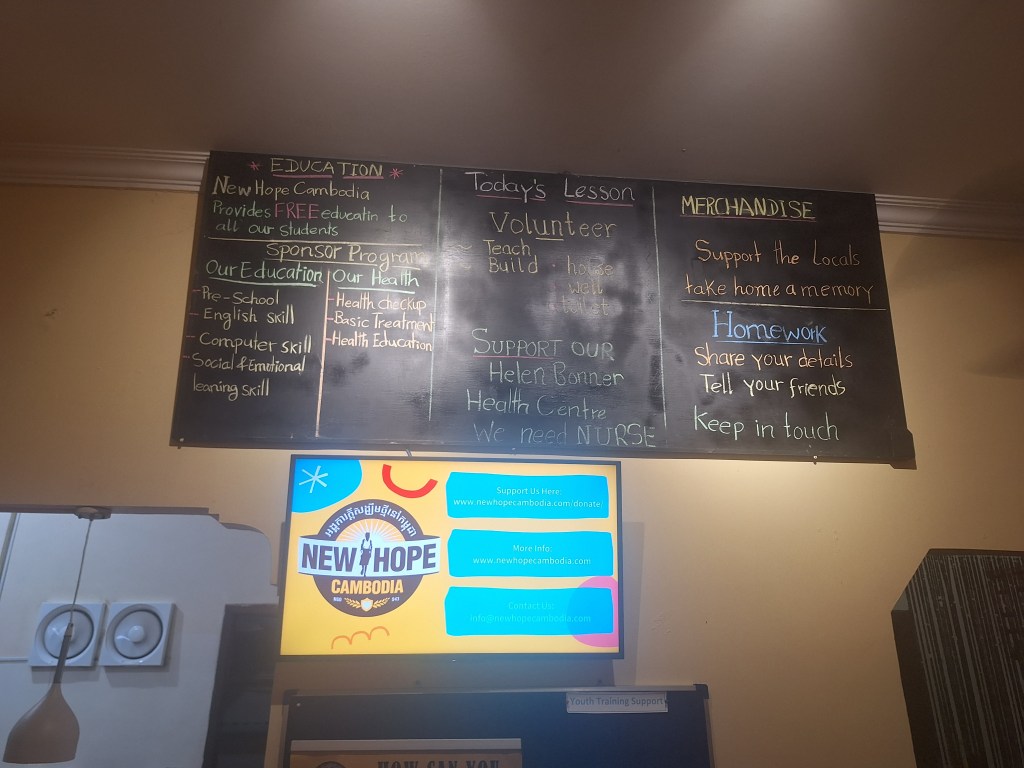 * EDUCATION *
New Hope Cambodia
Provides FREE educatin to
all our students
Sponsor Program
Our Education
- Pre-School
- English skill
- Computer skill
- Social & Emotional
leaning skill
Our Health
- Health checkup
- Basic Treatment
- Health Education
Today's Lesson
Volunteer
Teach
Build . house
. well
. toilet
SUPPORT OUR
Helen Bonner
Health Centre
We need NURSE
MERCHANDISE
Support the Locals
take home a memory
Homework
Share your details
Tell your friends
Keep in touch
អង្គការក្តីសង្ឃឹមថ្មីនៃកម្ពុជា
NEW HOPE
CAMBODIA
Support Us Here:
www.newhopecambodia.com/donate
More Info:
www.newhopecambodia.com
Contact Us:
info@newhopecambodia.com
Youth Training Support
HOW CAN YOU